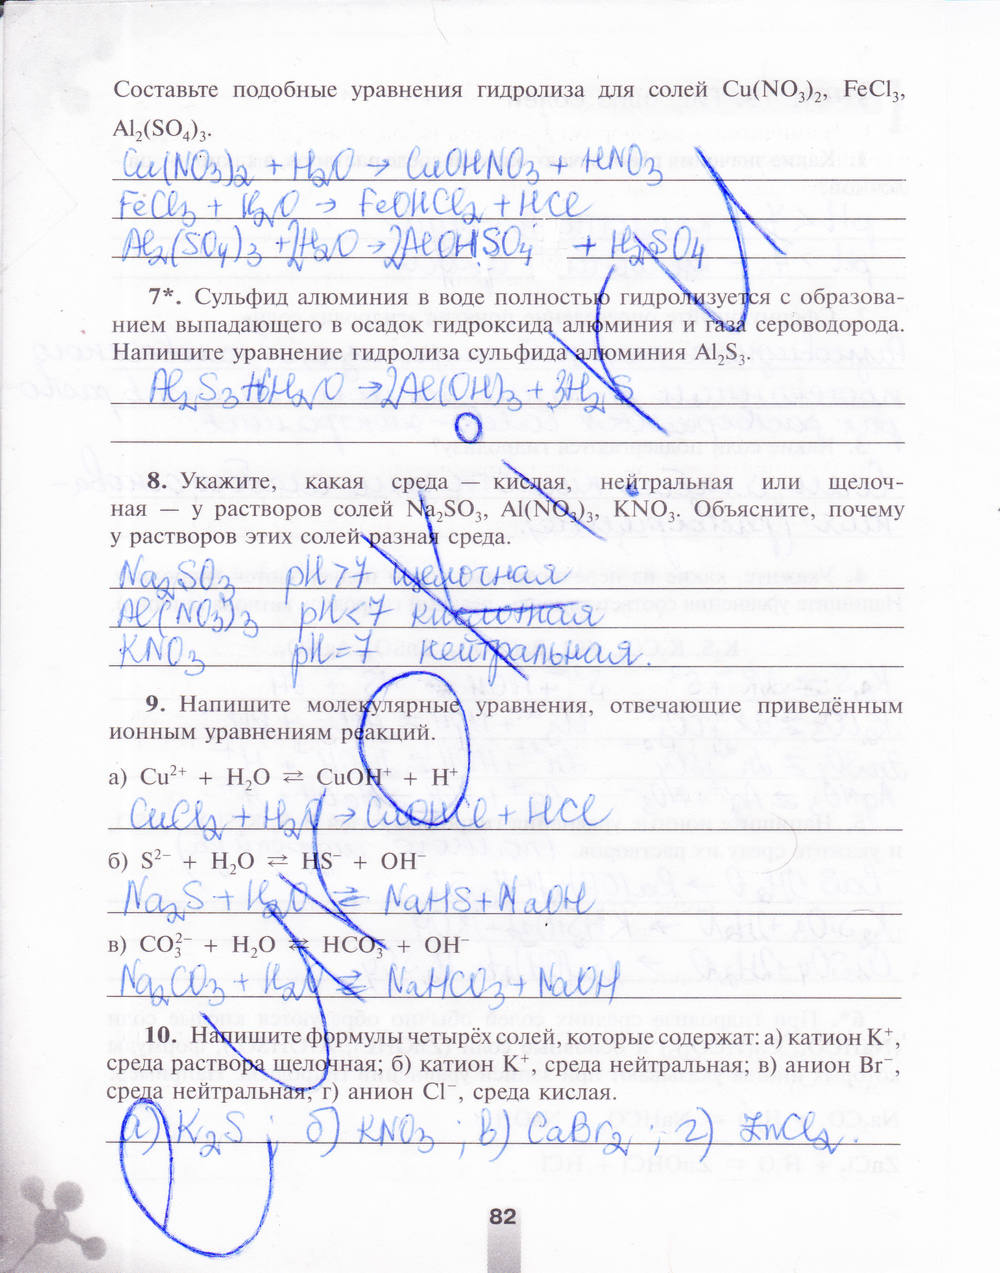 Составьте подобные уравнения гидролиза для солей Cu(NO₃)₂, FeCl₃,
Al₂(SO₄)₃.
Cu(NO₃)₂ + H₂O → CuOHNO₃ + HNO₃
FeCl₃ + H₂O → FeOHCl₂ + HCl
Al₂(SO₄)₃ + 2H₂O → 2AlOHSO₄ + H₂SO₄
7*. Сульфид алюминия в воде полностью гидролизуется с образова-
нием выпадающего в осадок гидроксида алюминия и газа сероводорода.
Напишите уравнение гидролиза сульфида алюминия Al₂S₃.
Al₂S₃ + 6H₂O → 2Al(OH)₃ + 3H₂S
8. Укажите, какая среда — кислая, нейтральная или щелоч-
ная — у растворов солей Na₂SO₃, Al(NO₃)₃, KNO₃. Объясните, почему
у растворов этих солей разная среда.
Na₂SO₃ pH>7 щелочная
Al(NO₃)₃ pH<7 кислотная
KNO₃ pH=7 нейтральная.
9. Напишите молекулярные уравнения, отвечающие приведённым
ионным уравнениям реакций.
а) Cu²⁺ + H₂O ⇄ CuOH⁺ + H⁺
CuCl₂ + H₂O → CuOHCl + HCl
б) S²⁻ + H₂O ⇄ HS⁻ + OH⁻
Na₂S + H₂O ⇄ NaHS + NaOH
в) CO₃²⁻ + H₂O ⇄ HCO₃⁻ + OH⁻
Na₂CO₃ + H₂O ⇄ NaHCO₃ + NaOH
10. Напишите формулы четырёх солей, которые содержат: а) катион K⁺,
среда раствора щелочная; б) катион K⁺, среда нейтральная; в) анион Br⁻,
среда нейтральная; г) анион Cl⁻, среда кислая.
а) K₂S ; б) KNO₃ ; в) CaBr₂ ; г) ZnCl₂.
82